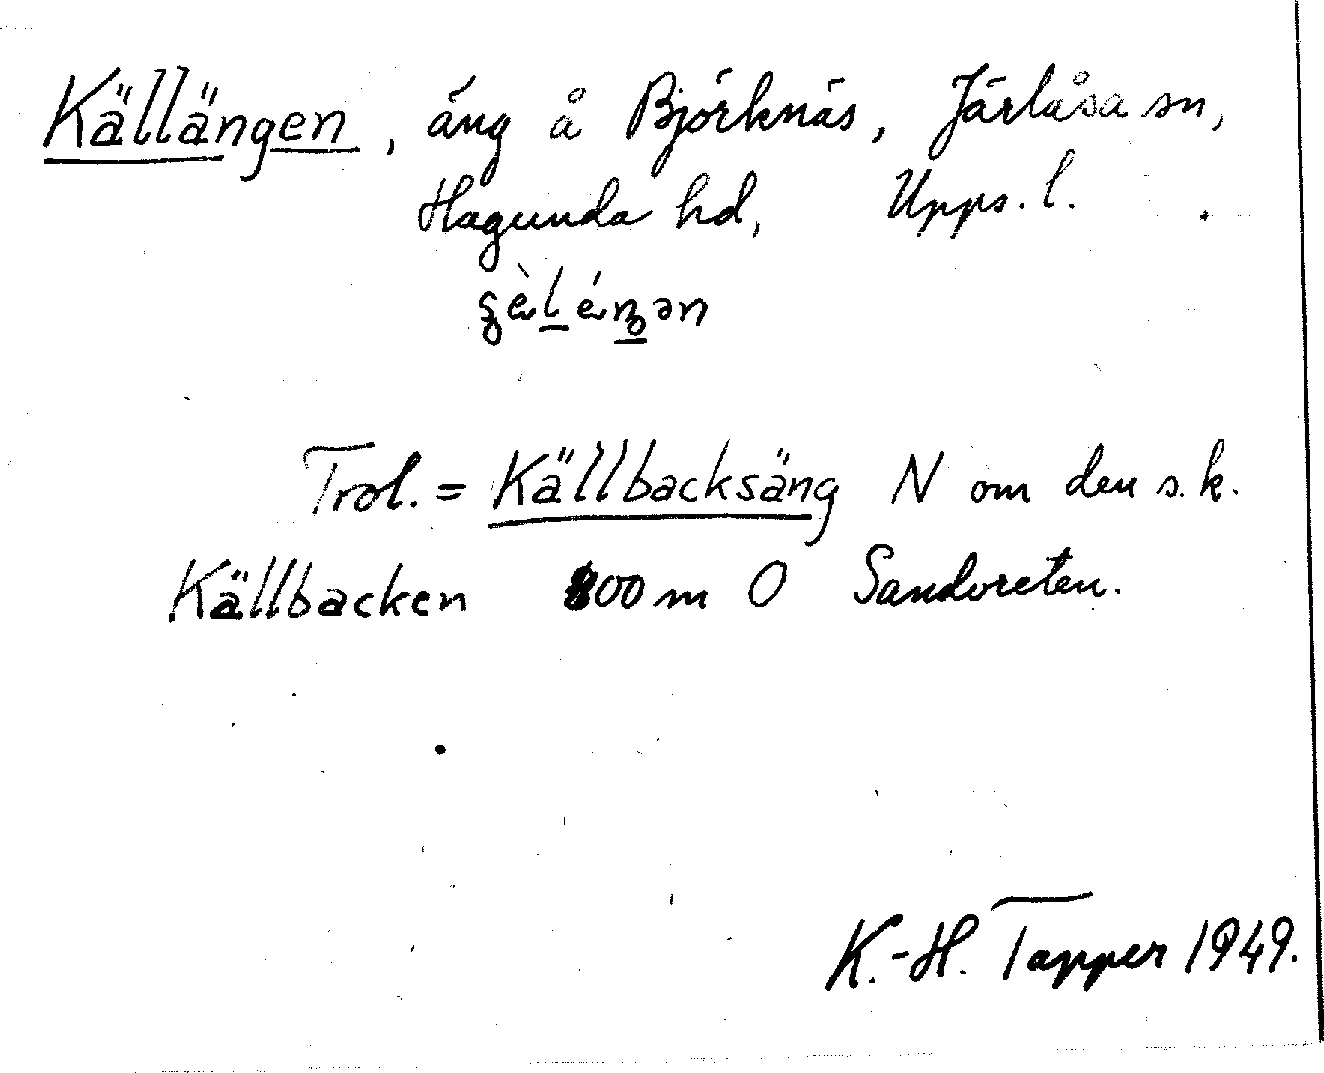 Källängen, äng å Björknäs, Järlåsa sn,
Hagunda hd, Upps. l.
Trol. = Källbacksäng N om den s.k.
Källbacken 800 m O Sandvreten.
K.-H. Tapper 1949.